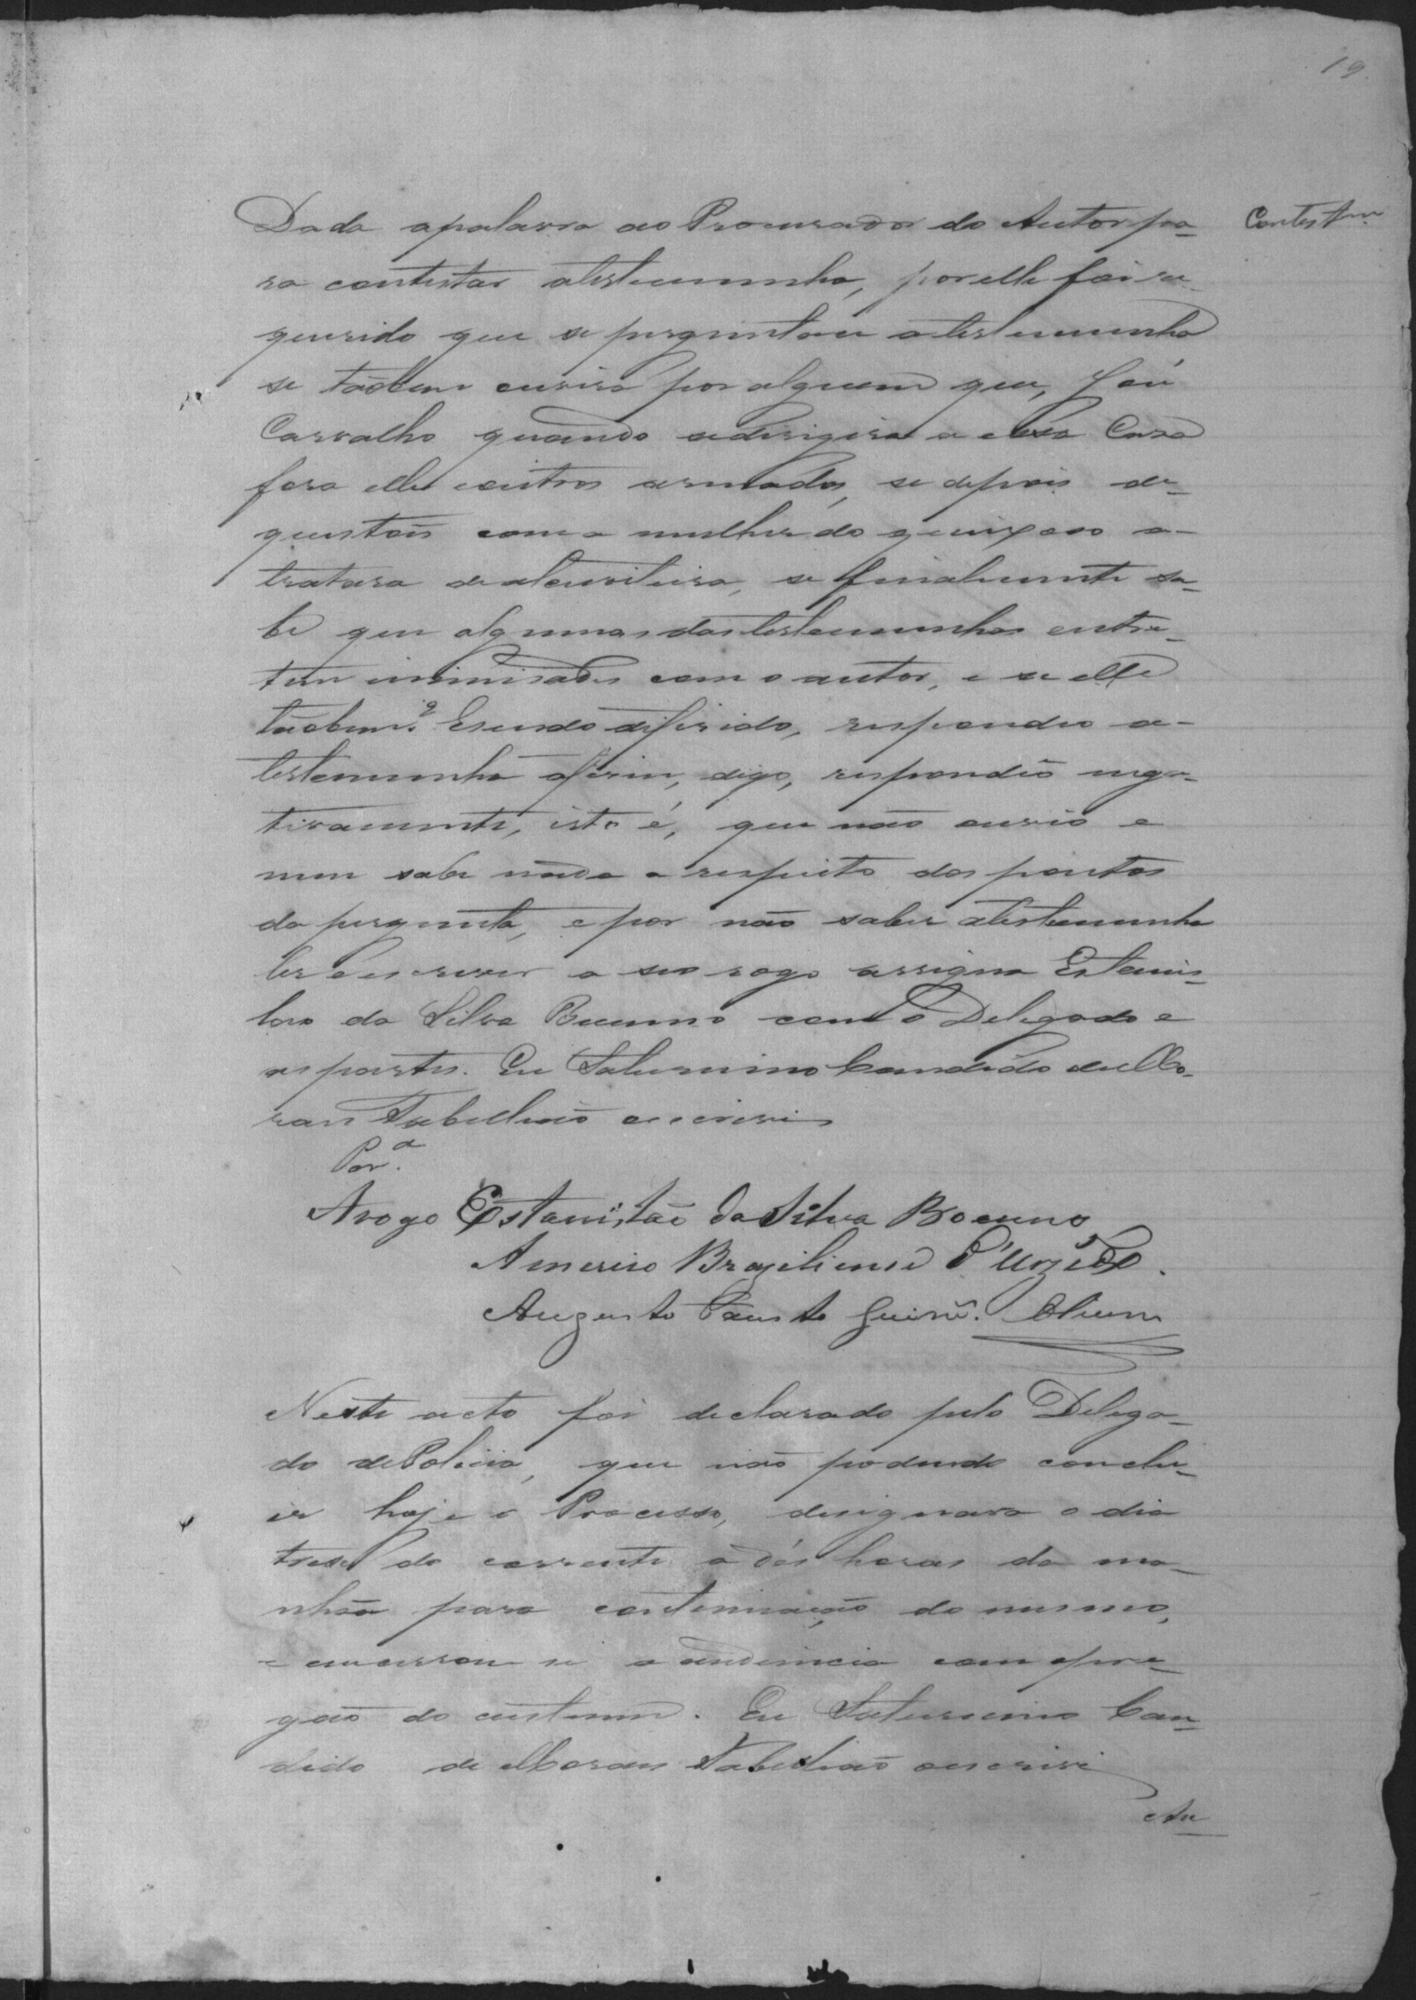 19
Dada apalavra ao Procurador do Autor pa-
ra contestar atestemunha, por elle foi re-
querido que se perguntace atestemunha
se taobem ouvira por alguem que, José
Carvalho quando sedirigira a essa Casa
fora elle e outros armados, se depois de
questoes com a mulher do queixoso a-
tratara de alcuviteira, se finalmente sa-
be que algumas das testemunhas entre-
tem inimisades com o autor, e se elle
taobem? E sendo deferido, respondeo a-
testemunha afirm, digo, respondeo nega-
tivamente, isto é, que não ouvio e
nem sabe nada a respeito dos pontos
da pergunta, e por não saber atestemunha
ler e escrever a seo rogo assigna Estanis-
lao da Silva Buenno com o Delegado e
as partes. Eu Saturnino Candido de Mo-
raes Tabellião escrevi
Contestam.
Por.a
Arogo Estanisláo da Silva Boenno
Americo Braziliense
Augusto Fausto Guim.
Neste acto foi declarado pelo Delega-
do de Policia, que não podendo conclu-
ir hoje o Processo, designava o dia
trese do corrente á dés horas da ma-
nhãa para continuação do mesmo,
e encerrou se a audiencia com opre-
gão do custume. Eu Saturnino Can-
dido de Moraes Tabellião escrevi